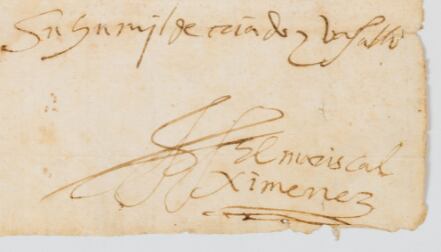 Su humilde criado y vasallo
El mariscal
Ximenez